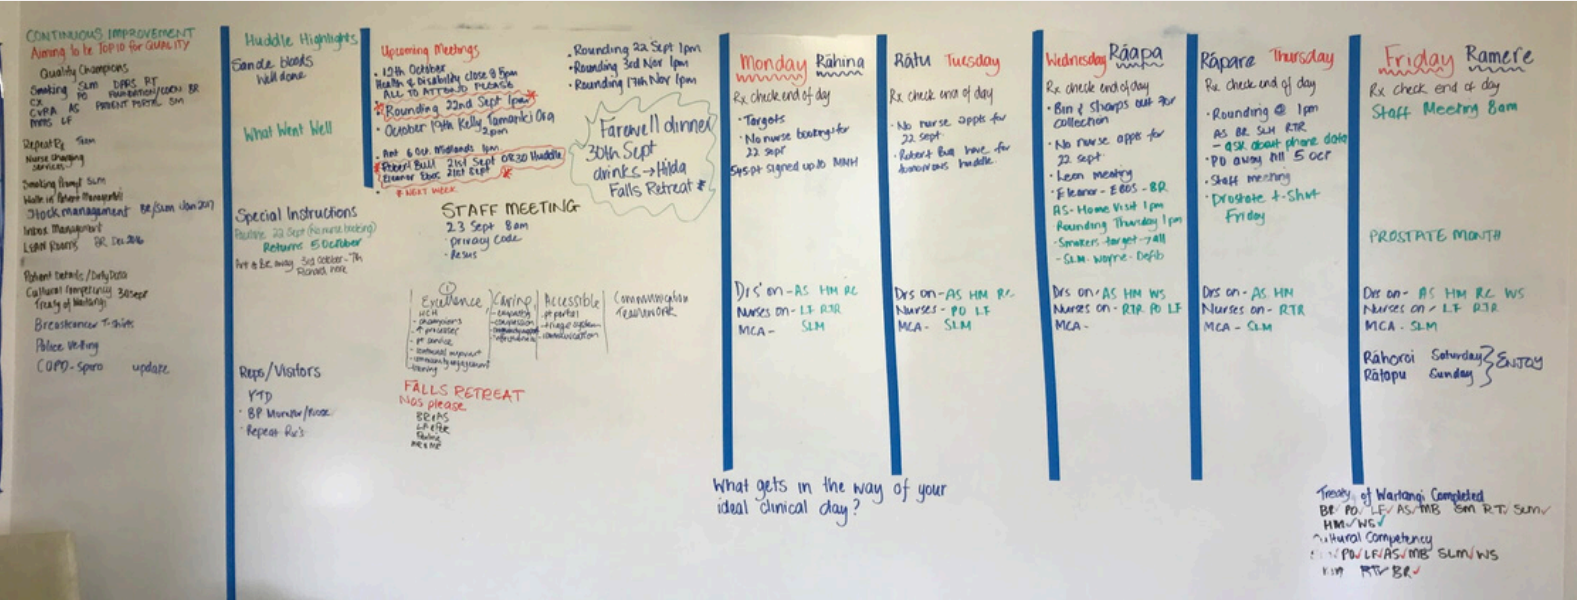 CONTINUOUS IMPROVEMENT
Aiming to be TOP 10 for QUALITY
Quality Champions
Smoking SLM DPRS RT
CX PO FOUNDATION/COEN BR
CVRA AS PATIENT PORTAL SM
MMS LF
Repeat Rx Team
Nurse charging
services-
Smoking Prompt SLM
Walk in Patient Management
Stock management BR/SLM Jan 2017
Inbox Management
LEAN ROOMS BR Dec 2016
Patient Details / Dirty Data
Cultural Competency 30 Sept
Treaty of Waitangi
Breastcancer T-Shirts
Police Vetting
COPD - Spiro update
Huddle Highlights
Sande bloods
Well done
What Went Well
Special Instructions
Pauline 22 Sept (No nurse booking)
Returns 5 October
Art & BR away 3rd October - 7th
Richard here
Reps/Visitors
YTD
· BP Monitor/Kiosk
· Repeat Rx's
Upcoming Meetings
· 12th October
Health & Disability close @ 5pm
ALL TO ATTEND PLEASE
* Rounding 22nd Sept 1pm *
· October 19th Kelly Tamariki Ora
2pm
· Art 6 Oct Midlands 1pm
* Robert Bull 21st Sept 0830 Huddle
Eleanor Ebos 21st Sept *
* NEXT WEEK
· Rounding 22 Sept 1pm
· Rounding 3rd Nov 1pm
· Rounding 17th Nov 1pm
Farewell dinner
30th Sept
drinks → Hilda
Falls Retreat *
STAFF MEETING
23 Sept 8am
· Privacy Code
· Resus
①
Excellence
HCH
- champions
- ↑ processes
- pt service
- continual improvement
- community engagement
- training
Caring
- empathy
- compassion
Accessible
- pt portal
- triage system
- communication
Communication
Teamwork
FALLS RETREAT
Nos please
BR & AS
LF & Pete
Pauline
Monday Rāhina
Rx check end of day
· Targets
· No nurse bookings for
22 sept
545 pt signed up to MMH
Drs on - AS HM RC
Nurses on - LF RTR
MCA - SLM
Rātu Tuesday
Rx check end of day
· No nurse appts for
22 sept
· Robert Bull here for
tomorrows huddle.
Drs on - AS HM RC
Nurses - PO LF
MCA - SLM
Wednesday Rāapa
Rx check end of day
· Bin & Sharps out for
collection
· No nurse appts for
22 sept.
· Lean meeting
· Eleanor - EBOS - BR
AS - Home Visit 1pm
· Rounding Thursday 1pm
· Smokers target → all
- SLM - Wayne - Defib
Drs on - AS HM WS
Nurses on - RTR PO LF
MCA -
Rāpare Thursday
Rx check end of day
· Rounding @ 1pm
AS BR SLM RTR
- ask about phone data
· PO away till 5 oct
· Staff meeting
· Prostate t-Shirt
Friday
Drs on - AS HM
Nurses on - RTR
MCA - SLM
Friday Ramere
Rx check end of day
Staff Meeting 8am
PROSTATE MONTH
Drs on - AS HM RC WS
Nurses on - LF RTR
MCA - SLM
Rāhoroi Saturday } ENJOY
Rātapu Sunday
What gets in the way of your
ideal clinical day?
Treaty of Waitangi Completed
BR✓ PO✓ LF✓ AS✓ MB SM RT✓ SLM✓
HM✓ WS✓
Cultural Competency
PO✓ LF✓ AS✓ MB SLM✓ WS
RT✓ BR✓